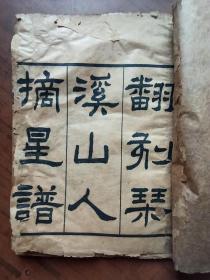 翻刻琹
溪山人
摘星譜